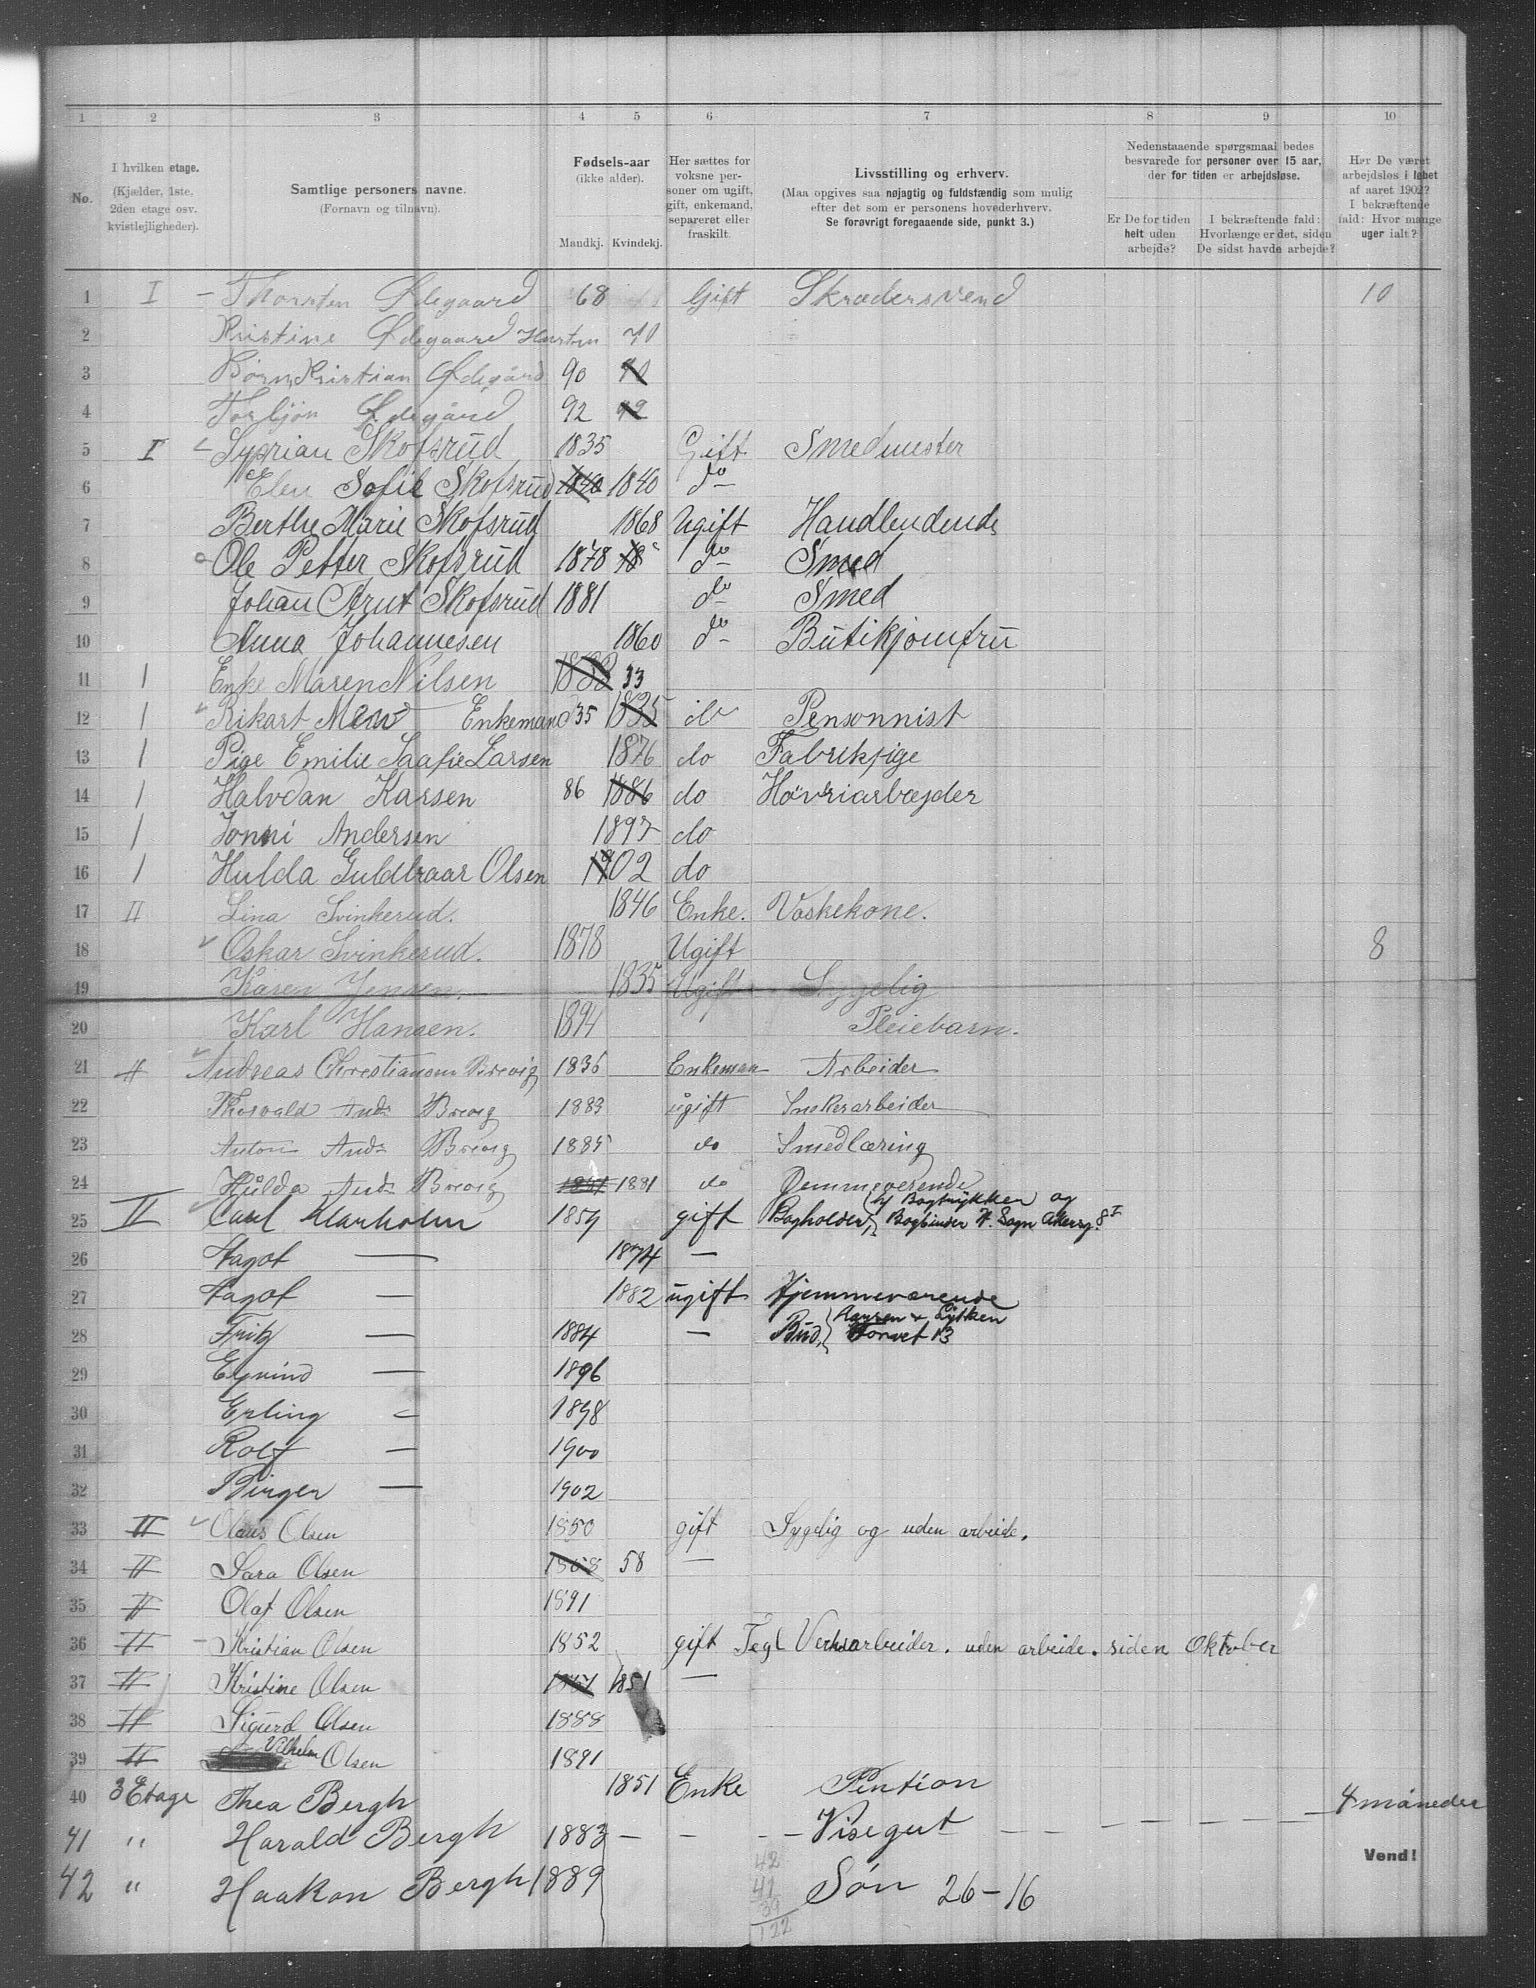 1 2 3 4 5 6 7 8 9 10
No.
I hvilken etage.
(Kjælder, 1ste.
2den etage osv.
kvistlejligheder).
Samtlige personers navne.
(Fornavn og tilnavn).
Fødsels-aar
(ikke alder).
Mandkj. Kvindekj.
Her sættes for
voksne per-
soner om ugift,
gift, enkemand,
separeret eller
fraskilt.
Livsstilling og erhverv.
(Maa opgives saa nøjagtig og fuldstændig som mulig
efter det som er personens hovederhverv.
Se forøvrigt foregaaende side, punkt 3.)
Nedenstaaende spørgsmaal bedes
besvarede for personer over 15 aar,
der for tiden er arbejdsløse.
Er De for tiden
helt uden
arbejde?
I bekræftende fald:
Hvorlænge er det, siden
De sidst havde arbejde?
Har De været
arbejdsløs i løbet
af aaret 1902?
I bekræftende
fald: Hvor mange
uger ialt?
1 I – Thorsten Ødegaard 68 Gift Skrædersvend 10
2 Kristine Ødegaard 70
3 Børn Kristian Ødegård 90
4 Torbjøn Ødegård 92
5 I Syprian Skofsrud 1835 Gift Smedmester
6 Elen Sofie Skofsrud 1840 1840 do
7 Berthe Marie Skofsrud 1868 Ugift Handlendende
8 Ole Petter Skofsrud 1878 18 do Smed
9 Johan Arnt Skofsrud 1881 do Smed
10 Anna Johannesen 1860 do Butikjomfru
11 1 Enke Maren Nilsen 1833 33
12 1 Rikart Enkemand 35 1835 do Pensonnist
13 1 Pige Emilie Saafie Larsen 1876 do Fabrikpige
14 1 Halvdan Karsen 86 1886 do Høvriarbejder
15 1 Jonni Andersen 1897 do
16 1 Hulda Guldbraar Olsen 1902 do
17 II Lina Svinkerud. 1846 Enke. Vaskekone.
18 Oskar Svinkerud. 1878 Ugift 8
19 Karen Jensen. 1835 Ugift Sygelig
20 Karl Hansen. 1894 Pleiebarn.
21 II Andreas Christiansen Brevig 1836 Enkeman Arbeider
22 Thorvald Ands Brevig 1883 ugift Snekerarbeider
23 Anton Ands Brevig 1885 do Smedlæring
24 Hulda Ands Brevig 1881 1881 do Jemmeverende
25 II Carl Klarholm 1859 gift Bogholder, Bogtrykker og
Bogbinder H. Sogn Akersg. 8 I
26 Hagot — 1874 —
27 Hagot — 1882 ugift Hjemmeværende
28 Fritz — 1884 — Bud, Aarsen & Lykken
Torvet 13
29 Eyvind — 1896
30 Erling — 1898
31 Rolf — 1900
32 Birger — 1902
33 II Claus Olsen 1850 gift Sygelig og uden arbeide.
34 II Sara Olsen 1858 58 —
35 II Olaf Olsen 1891
36 II – Kristian Olsen 1852 gift Tegl Verksarbeider. uden arbeide. siden Oktober
37 II Kristine Olsen 1851 1851 —
38 II Sigurd Olsen 1888
39 II Vilhelm Olsen 1891
40 3 Etage Thea Bergh 1851 Enke Pention
41 " Harald Bergh 1883 – – – Visegut – – – – – – – 4 måneder
42 " Haakon Bergh 1889 Søn 26–16
42
41
39
122
Vend!